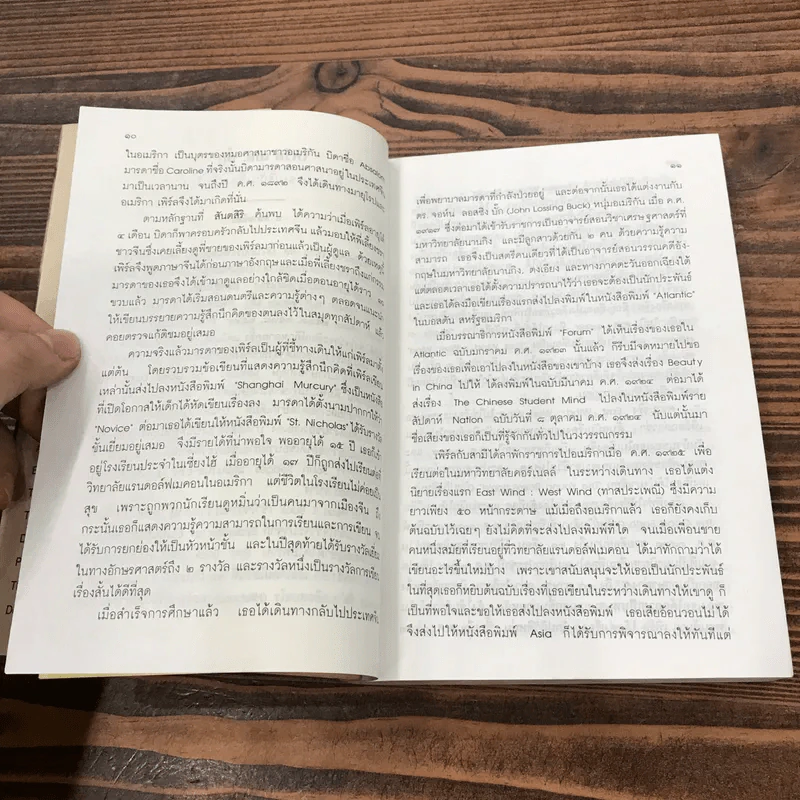 ๑๐
ในอเมริกา เป็นบุตรของหมอศาสนาชาวอเมริกัน บิดาชื่อ Absalom
มารดาชื่อ Caroline ที่จริงนั้นบิดามารดาสอนศาสนาอยู่ในประเทศจีน
มาเป็นเวลานาน จนถึงปี ค.ศ. ๑๘๙๒ จึงได้เดินทางมายุโรปและ
อเมริกา เพิร์ลจึงได้มาเกิดที่นั่น
ตามหลักฐานที่ สันตสิริ ค้นพบ ได้ความว่าเมื่อเพิร์ลอายุได้
๔ เดือน บิดาก็พาครอบครัวกลับไปประเทศจีน แล้วมอบให้พี่เลี้ยงชรา
ชาวจีนซึ่งเคยเลี้ยงดูพี่ชายของเพิร์ลมาก่อนแล้วเป็นผู้ดูแล ด้วยเหตุนี้
เพิร์ลจึงพูดภาษาจีนได้ก่อนภาษาอังกฤษและเมื่อพี่เลี้ยงชราถึงแก่กรรม
มารดาของเธอจึงได้เข้ามาดูแลอย่างใกล้ชิดเมื่อตอนอายุได้ราว ๑๐
ขวบแล้ว มารดาได้เริ่มสอนดนตรีและความรู้ต่างๆ ตลอดจนแนะนำ
ให้เขียนบรรยายความรู้สึกนึกคิดของตนลงไว้ในสมุดทุกสัปดาห์ แล้ว
คอยตรวจแก้ติชมอยู่เสมอ
ความจริงแล้วมารดาของเพิร์ลเป็นผู้ที่ชี้ทางเดินให้แก่เพิร์ลมาตั้ง
แต่ต้น โดยรวบรวมข้อเขียนที่แสดงความรู้สึกนึกคิดที่เพิร์ลเขียน
เหล่านั้นส่งไปลงหนังสือพิมพ์ "Shanghai Murcury" ซึ่งเป็นหนังสือ
ที่เปิดโอกาสให้เด็กได้หัดเขียนเรื่องลง มารดาได้ตั้งนามปากกาให้ว่า
"Novice" ต่อมาเธอได้เขียนให้หนังสือพิมพ์ "St. Nicholas" ได้รับรางวัล
ชั้นเยี่ยมอยู่เสมอ จึงมีรายได้ที่น่าพอใจ พออายุได้ ๑๕ ปี เธอก็เข้า
อยู่โรงเรียนประจำในเซี่ยงไฮ้ เมื่ออายุได้ ๑๗ ปีก็ถูกส่งไปเรียนต่อที่
วิทยาลัยแรนดอล์ฟเมคอนในอเมริกา แต่ชีวิตในโรงเรียนไม่ค่อยเป็น
สุข เพราะถูกพวกนักเรียนดูหมิ่นว่าเป็นคนมาจากเมืองจีน ถึง
กระนั้นเธอก็แสดงความรู้ความสามารถในการเรียนและการเขียน จน
ได้รับการยกย่องให้เป็นหัวหน้าชั้น และในปีสุดท้ายได้รับรางวัลเยี่ยม
ในทางอักษรศาสตร์ถึง ๒ รางวัล และรางวัลหนึ่งเป็นรางวัลการเขียน
เรื่องสั้นได้ดีที่สุด
เมื่อสำเร็จการศึกษาแล้ว เธอได้เดินทางกลับไปประเทศจีน
๑๑
เพื่อพยาบาลมารดาที่กำลังป่วยอยู่ และต่อจากนั้นเธอได้แต่งงานกับ
ดร. จอห์น ลอสซิง บั๊ก (John Lossing Buck) หนุ่มอเมริกัน เมื่อ ค.ศ.
๑๙๑๗ ซึ่งต่อมาได้เข้ารับราชการเป็นอาจารย์สอนวิชาเศรษฐศาสตร์ที่
มหาวิทยาลัยนานกิง และมีลูกสาวด้วยกัน ๒ คน ด้วยความรู้ความ
สามารถ เธอจึงเป็นสตรีคนเดียวที่ได้เป็นอาจารย์สอนวรรณคดีอัง-
กฤษในมหาวิทยาลัยนานกิง ตงเอี้ยง และทางภาคตะวันออกเฉียงใต้
แต่ตลอดเวลาเธอได้ตั้งความปรารถนาไว้ว่า เธอจะต้องเป็นนักประพันธ์
และเธอได้ลงมือเขียนเรื่องแรกส่งไปลงพิมพ์ในหนังสือพิมพ์ "Atlantic"
ในบอสตัน สหรัฐอเมริกา
เมื่อบรรณาธิการหนังสือพิมพ์ "Forum" ได้เห็นเรื่องของเธอใน
Atlantic ฉบับมกราคม ค.ศ. ๑๙๒๓ นั้นแล้ว ก็รีบมีจดหมายไปขอ
เรื่องของเธอเพื่อเอาไปลงในหนังสือของเขาบ้าง เธอจึงส่งเรื่อง Beauty
in China ไปให้ ได้ลงพิมพ์ในฉบับมีนาคม ค.ศ. ๑๙๒๔ ต่อมาได้
ส่งเรื่อง The Chinese Student Mind ไปลงในหนังสือพิมพ์ราย
สัปดาห์ Nation ฉบับวันที่ ๘ ตุลาคม ค.ศ. ๑๙๒๔ นับแต่นั้นมา
ชื่อเสียงของเธอก็เป็นที่รู้จักกันทั่วไปในวงวรรณกรรม
เพิร์ลกับสามีได้ลาพักราชการไปอเมริกาเมื่อ ค.ศ. ๑๙๒๕ เพื่อ
เรียนต่อในมหาวิทยาลัยคอร์เนลล์ ในระหว่างเดินทาง เธอได้แต่ง
นิยายเรื่องแรก East Wind : West Wind (ทาสประเพณี) ซึ่งมีความ
ยาวเพียง ๕๐ หน้ากระดาษ แม้เมื่อถึงอเมริกาแล้ว เธอก็ยังคงเก็บ
ต้นฉบับไว้เฉยๆ ยังไม่คิดที่จะส่งไปลงพิมพ์ที่ใด จนเมื่อเพื่อนชาย
คนหนึ่งสมัยที่เรียนอยู่ที่วิทยาลัยแรนดอล์ฟเมคอน ได้มาทักถามว่าได้
เขียนอะไรขึ้นใหม่บ้าง เพราะเขาสนับสนุนจะให้เธอเป็นนักประพันธ์
ในที่สุดเธอก็หยิบต้นฉบับเรื่องที่เธอเขียนในระหว่างเดินทางให้เขาดู ก็
เป็นที่พอใจและขอให้เธอส่งไปลงหนังสือพิมพ์ เธอเสียอ้อนวอนไม่ได้
จึงส่งไปให้หนังสือพิมพ์ Asia ก็ได้รับการพิจารณาลงให้ทันทีแต่